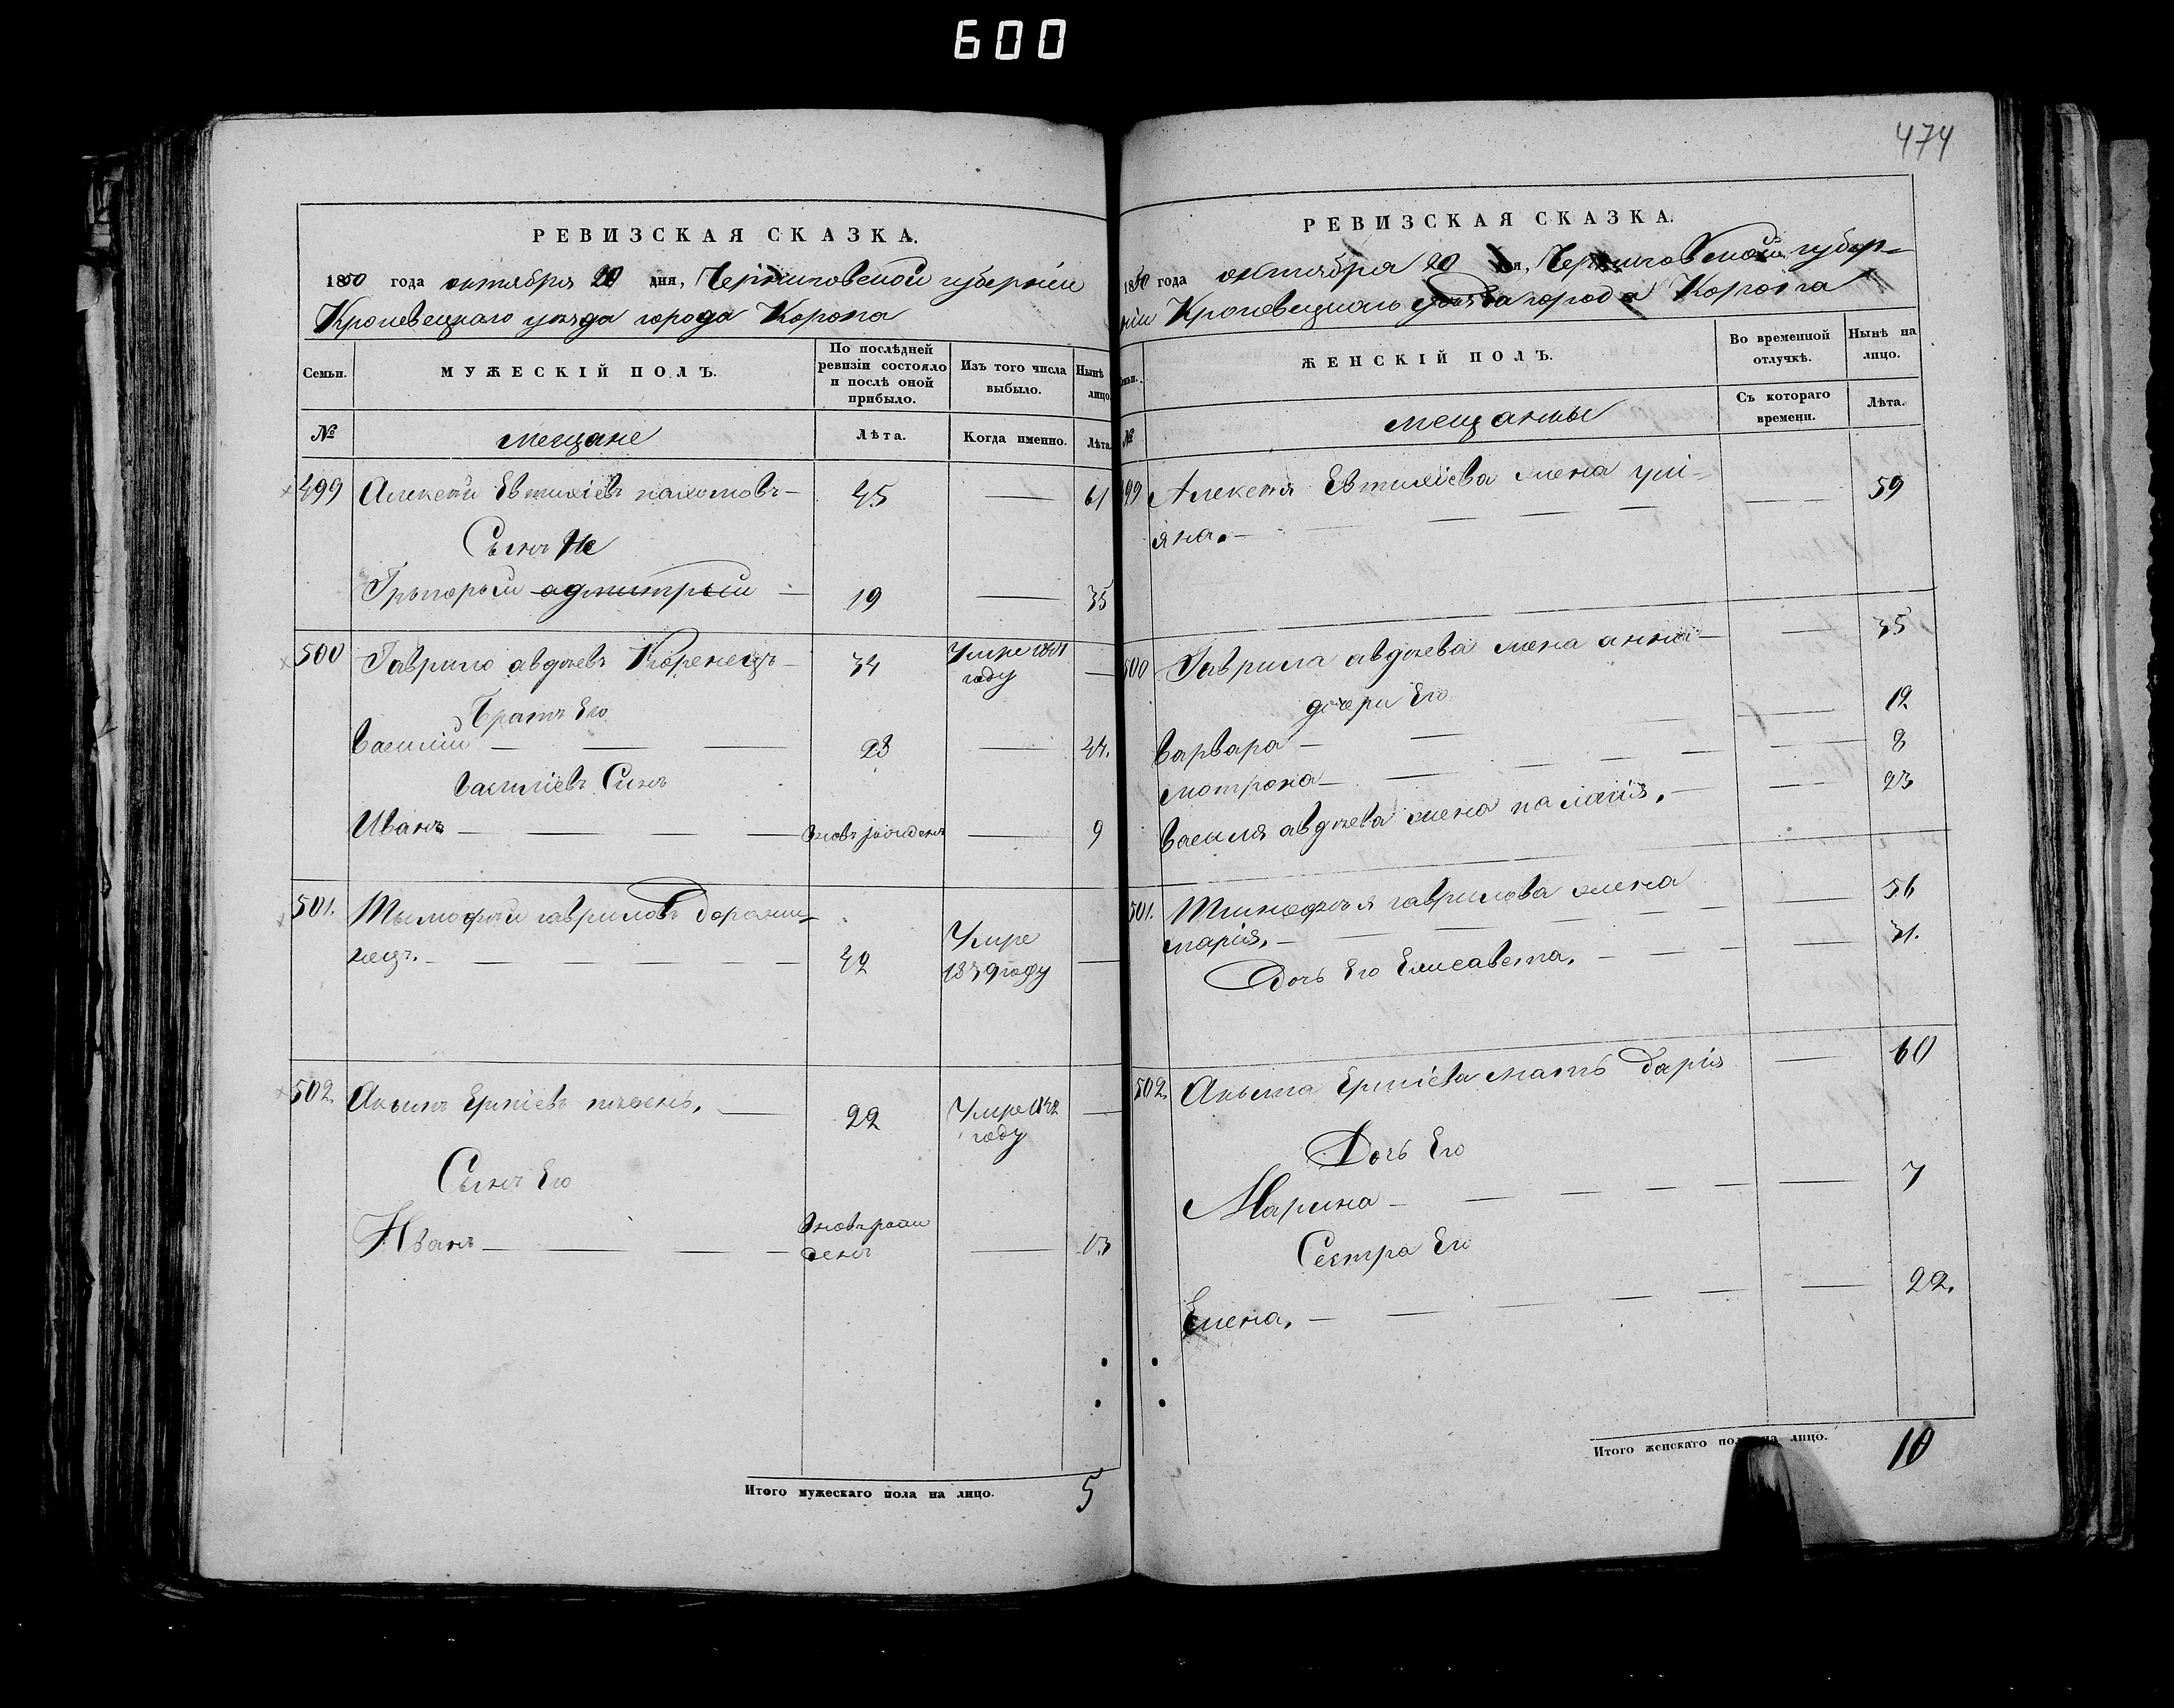 600
РЕВИЗСКАЯ СКАЗКА.
1850 года октября 20 дня, Черниговской губерніи
Кролевецкаго уѣзда города Коропа
Семьи.
МУЖЕСКІЙ ПОЛЪ.
По послѣдней ревизіи состояло и послѣ оной прибыло.
Изъ того числа выбыло.
Нынѣ лицо.
№
мещане
Лѣта.
Когда именно.
Лѣта.
499 Алексѣй Евтихіевъ пахомовъ 45 61
Сынъ
Грыгорый адмитрый 19 35
500 Гаврило авдѣевъ Коренецъ 34 Умре 1841 году
Братъ Его
Василій 28 44.
василіевъ Сынъ
Иванъ вновь рожденъ 9
501. Тымофей гавриловъ
нецъ. 42 Умре 1839 году
502. Акымъ 22 Умре 1842 году
Сынъ Его
Иванъ вновь рож
денъ 13
Итого мужескаго пола на лицо. 5
474
РЕВИЗСКАЯ СКАЗКА.
1850 года октября 20 дня, Черниговской губер-
ніи Кролевецкаго уѣзда города Коропа
ЖЕНСКІЙ ПОЛЪ.
Во временной отлучкѣ.
Нынѣ на лицо.
№
мещанкы
Съ котораго времени.
Лѣта.
499 Алексѣя Евтихіева жена улі-
яна. 59
500 Гаврила авдѣева жена анна 35
дочери Его
варвара 12
мотрона 8
василя авдѣева жена палагія. 23
501. Тимофея гаврилова жена
марія. 56
Дочь Его Елисавета. 31.
502. Акыма мать дарія 60
Дочь Его
Марина 7
Сестра Его
Елена. 22.
Итого женскаго пола на лицо. 10